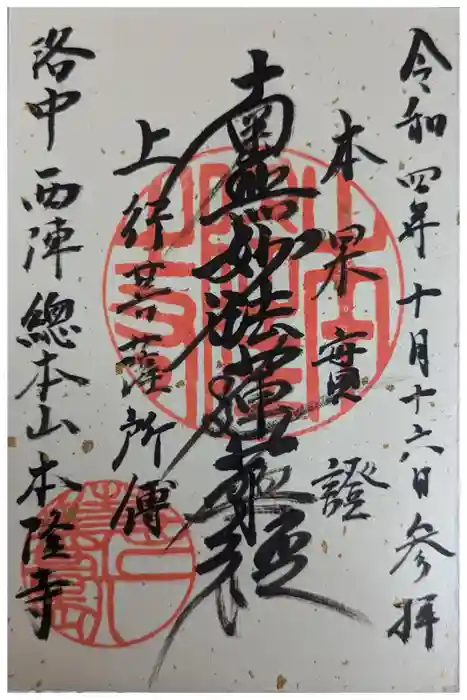 令和四年十月十六日参拝
本果實證
南無妙法蓮華経
上行菩薩所傳
洛中西陣總本山本隆寺